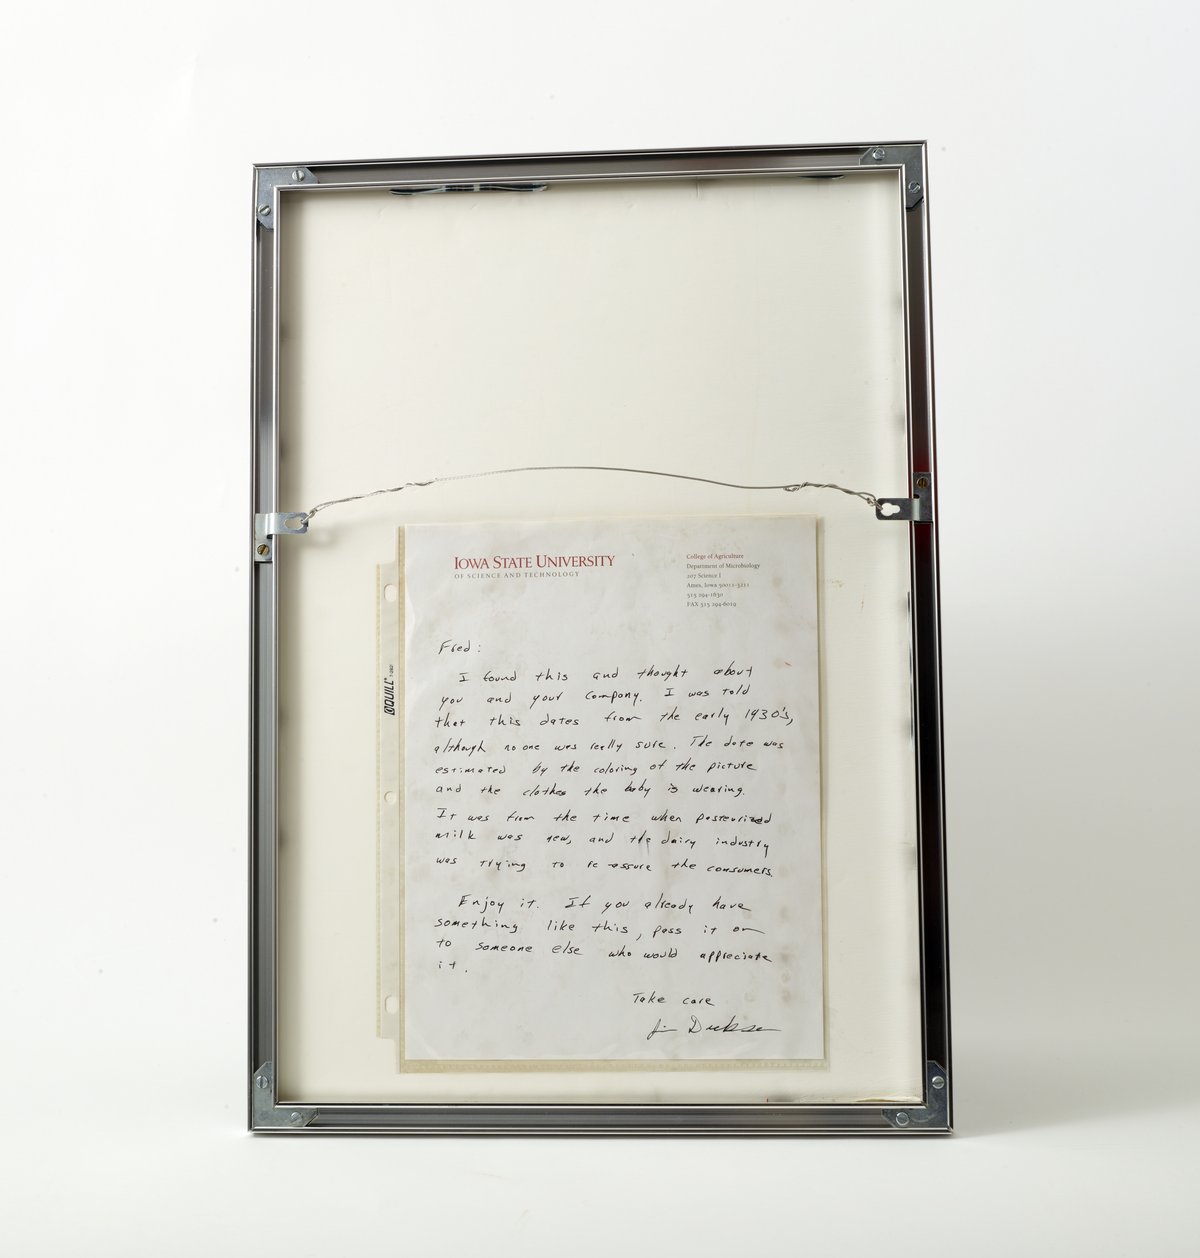 IOWA STATE UNIVERSITY
OF SCIENCE AND TECHNOLOGY
College of Agriculture
Department of Microbiology
207 Science I
Ames, Iowa 50011-3211
515 294-1630
FAX 515 294-6019
QUILL
Fred:
I found this and thought about
you and your company. I was told
that this dates from the early 1930's,
although no one was really sure. The date was
estimated by the coloring of the picture
and the clothes the baby is wearing.
It was from the time when pasteurized
milk was new, and the dairy industry
was trying to re assure the consumers.
Enjoy it. If you already have
something like this, pass it on
to someone else who would appreciate
it.
Take care
Jim Dickson